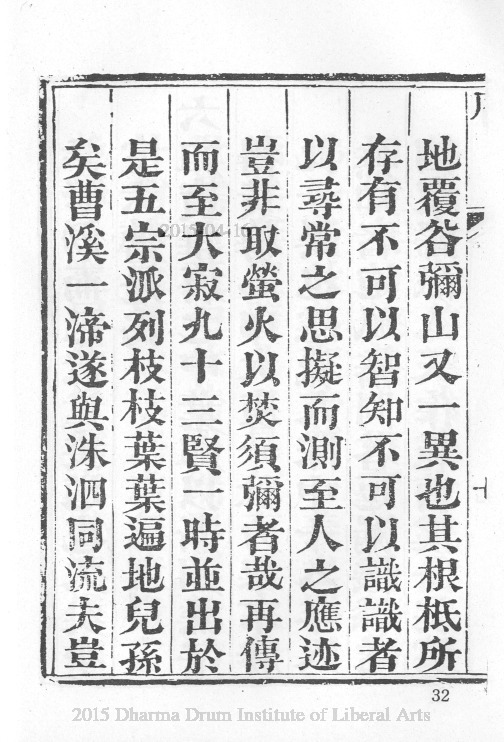 地覆谷彌山又一異也其根柢所
存有不可以智知不可以識識者
以尋常之思擬而測至人之應迹
豈非取螢火以焚須彌者哉再傳
而至大寂九十三賢一時並出於
是五宗派列枝枝葉葉遍地兒孫
矣曹溪一渧遂與洙泗同流夫豈
32
2015-04-16
2015 Dharma Drum Institute of Liberal Arts